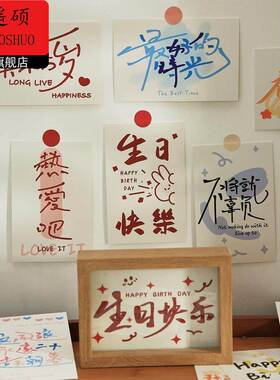 硕
OSHUO
旗舰店
岁
LONG LIVE
HAPPINESS
最好的
时光
The Best Time
热
爱
吧
LOVE IT
LOVE IT
生日
HAPPY BIRTH
DAY
快樂
不将就
不辜负
Not making do with it
live up to
HAPPY BIRTH DAY
生日快乐
Happy